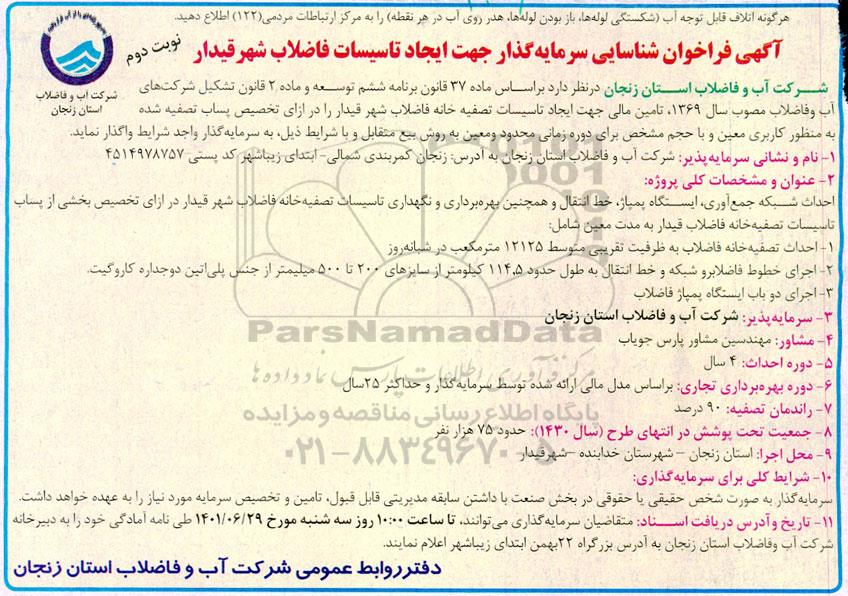 هرگونه اتلاف قابل توجه آب (شکستگی لوله‌ها، باز بودن لوله‌ها، هدر روی آب در هر نقطه) را به مرکز ارتباطات مردمی(۱۲۲) اطلاع دهید.
آگهی فراخوان شناسایی سرمایه‌گذار جهت ایجاد تاسیسات فاضلاب شهر قیدار
نوبت دوم
شرکت آب و فاضلاب
استان زنجان
شرکت آب و فاضلاب استان زنجان درنظر دارد براساس ماده ۳۷ قانون برنامه ششم توسعه و ماده ۲ قانون تشکیل شرکت‌های
آب وفاضلاب مصوب سال ۱۳۶۹، تامین مالی جهت ایجاد تاسیسات تصفیه خانه فاضلاب شهر قیدار را در ازای تخصیص پساب تصفیه شده
به منظور کاربری معین و با حجم مشخص برای دوره زمانی محدود ومعین به روش بیع متقابل و با شرایط ذیل، به سرمایه‌گذار واجد شرایط واگذار نماید.
۱- نام و نشانی سرمایه‌پذیر: شرکت آب و فاضلاب استان زنجان به آدرس: زنجان کمربندی شمالی- ابتدای زیباشهر کد پستی ۴۵۱۴۹۷۸۷۵۷
۲- عنوان و مشخصات کلی پروژه:
احداث شبکه جمع‌آوری، ایستگاه پمپاژ، خط انتقال و همچنین بهره‌برداری و نگهداری تاسیسات تصفیه‌خانه فاضلاب شهر قیدار در ازای تخصیص بخشی از پساب
تاسیسات تصفیه‌خانه فاضلاب قیدار به مدت معین شامل:
۱- احداث تصفیه‌خانه فاضلاب به ظرفیت تقریبی متوسط ۱۲۱۲۵ مترمکعب در شبانه‌روز
۲- اجرای خطوط فاضلابرو شبکه و خط انتقال به طول حدود ۱۱۴,۵ کیلومتر از سایزهای ۲۰۰ تا ۵۰۰ میلیمتر از جنس پلی‌اتین دوجداره کاروگیت.
۳- اجرای دو باب ایستگاه پمپاژ فاضلاب
۳- سرمایه‌پذیر: شرکت آب و فاضلاب استان زنجان
۴- مشاور: مهندسین مشاور پارس جویاب
۵- دوره احداث: ۴ سال
۶- دوره بهره‌برداری تجاری: براساس مدل مالی ارائه شده توسط سرمایه‌گذار و حداکثر ۲۵سال
۷- راندمان تصفیه: ۹۰ درصد
۸- جمعیت تحت پوشش در انتهای طرح (سال ۱۴۳۰): حدود ۷۵ هزار نفر
۹- محل اجرا: استان زنجان – شهرستان خدابنده –شهرقیدار
۱۰- شرایط کلی برای سرمایه‌گذاری:
سرمایه‌گذار به صورت شخص حقیقی یا حقوقی در بخش صنعت با داشتن سابقه مدیریتی قابل قبول، تامین و تخصیص سرمایه مورد نیاز را به عهده خواهد داشت.
۱۱- تاریخ وآدرس دریافت اسناد: متقاضیان سرمایه‌گذاری می‌توانند، تا ساعت ۱۰:۰۰ روز سه شنبه مورخ ۱۴۰۱/۰۶/۲۹ طی نامه آمادگی خود را به دبیرخانه
شرکت آب وفاضلاب استان زنجان به آدرس بزرگراه ۲۲بهمن ابتدای زیباشهر اعلام نمایند.
دفتر روابط عمومی شرکت آب و فاضلاب استان زنجان
ParsNamadData
مرکز فرآوری اطلاعات پارس نماد داده‌ها
پایگاه اطلاع رسانی مناقصه و مزایده
۰۲۱-۸۸۳۴۹۶۷۰-۵